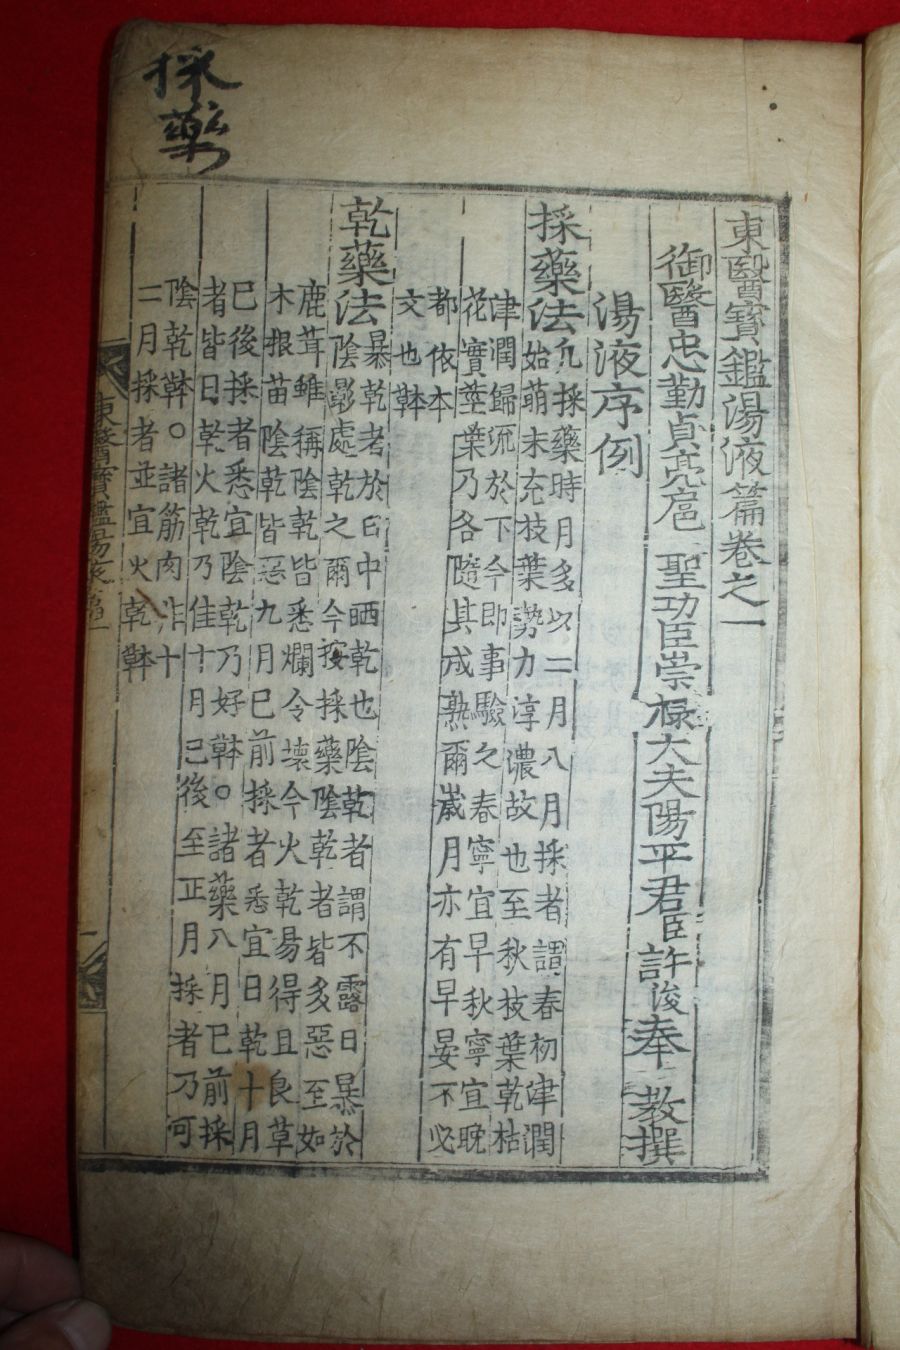 採藥
東醫寶鑑湯液篇卷之一
御醫忠勤貞亮扈 聖功臣崇祿大夫陽平君臣許浚奉 敎撰
湯液序例
採藥法凡採藥時月多以二月八月採者謂春初津潤
始萌未充枝葉勢力淳濃故也至秋枝葉乾枯
津潤歸流於下今即事驗之春寧宜早秋寧宜晚
花實莖葉乃各隨其成熟爾歲月亦有早晏不必
都依本
文也本草
乾藥法暴乾者於日中晒乾也陰乾者謂不露日暴於
陰影處乾之爾今按採藥陰乾者皆多惡至如
鹿茸雖稱陰乾皆悉爛令壞今火乾易得且良草
木根苗陰乾皆惡九月已前採者悉宜日乾十月
已後採者悉宜陰乾乃好本草○諸藥八月已前採
者皆日乾火乾乃佳十月已後至正月採者乃可
陰乾本草○諸筋肉非十
二月採者並宜火乾本草
東醫寶鑑湯液篇一